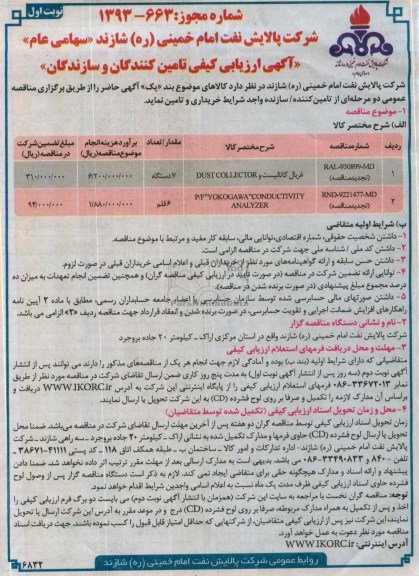 نوبت اول
شماره مجوز: ۶۶۳-۱۳۹۳
شرکت پالایش نفت امام خمینی (ره) شازند «سهامی عام»
«آگهی ارزیابی کیفی تامین کنندگان و سازندگان»
شرکت پالایش نفت امام خمینی (ره) شازند در نظر دارد کالاهای موضوع بند «یک» آگهی حاضر را از طریق برگزاری مناقصه
عمومی دو مرحله‌ای از تامین‌کننده/ سازنده واجد شرایط خریداری و تامین نماید.
۱- موضوع مناقصه
الف) شرح مختصر کالا
ردیف شماره مناقصه شرح مختصر کالا مقدار/ تعداد برآورد هزینه انجام موضوع مناقصه (ریال) مبلغ تضمین شرکت در مناقصه (ریال)
۱ RAL-930899-MD (تجدید مناقصه) غربال کاتالیست و DUST COLLECTOR ۷ دستگاه ۶/۲۰۰/۰۰۰/۰۰۰ ۳۱۰/۰۰۰/۰۰۰
۲ RND-9221477-MD (تجدید مناقصه) P/F"YOKOGAWA"CONDUCTIVITY ANALYZER ۶ قلم ۱/۸۸۰/۰۰۰/۰۰۰ ۹۴/۰۰۰/۰۰۰
ب) شرایط اولیه متقاضی
۱- داشتن شخصیت حقوقی، شماره اقتصادی، توانایی مالی، سابقه کار مفید و مرتبط با موضوع مناقصه.
۲- داشتن کد ملی / شناسه ملی جهت شرکت در مناقصه الزامی است.
۳- داشتن حسن سابقه و ارائه گواهینامه‌های مورد نظر از خریداران قبلی و اعلام اسامی خریداران قبلی در صورت لزوم.
۴- توانایی ارائه تضمین شرکت در مناقصه (در صورت تایید در ارزیابی کیفی مناقصه گران) و همچنین تضمین انجام تعهدات به میزان ده
درصد مجموع مبلغ پیشنهادی (در صورت برنده شدن در مناقصه).
۵- داشتن صورتهای مالی حسابرسی شده توسط سازمان حسابرسی یا اعضاء جامعه حسابداران رسمی، مطابق با ماده ۲ آیین نامه
راهکارهای افزایش ضمانت اجرایی و تقویت حسابرسی، در صورت برنده شدن و انعقاد قرارداد جهت مناقصه ردیف «۲» الزامی می باشد.
۲- نام و نشانی دستگاه مناقصه گزار
شرکت پالایش نفت امام خمینی (ره) شازند واقع در استان مرکزی اراک - کیلومتر ۲۰ جاده بروجرد
۳- مهلت و محل دریافت فرمهای استعلام ارزیابی کیفی
متقاضیانی که دارای شرایط اولیه (بند ب) بوده و آمادگی لازم جهت انجام هر یک از مناقصه‌های مذکور را دارند می توانند پس از انتشار
آگهی نوبت دوم (سه روز پس از انتشار آگهی نوبت اول) به مدت پنج روز کاری ضمن ارسال تقاضای شرکت در مناقصه مورد نظر از طریق
نمابر ۳۳۶۷۲۰۱۳-۰۸۶ فرمهای استعلام ارزیابی کیفی را از پایگاه اینترنتی این شرکت به آدرس WWW.IKORC.IR دریافت و
براساس آن مدارک لازمه را تکمیل و صرفا بر روی لوح فشرده (CD) به این شرکت تحویل یا ارسال نمایند.
۴- محل و زمان تحویل اسناد ارزیابی کیفی (تکمیل شده توسط متقاضیان)
زمان تحویل اسناد ارزیابی کیفی توسط مناقصه گران دو هفته پس از آخرین مهلت ارسال تقاضای شرکت در مناقصه می‌باشد. ضمنا محل
تحویل یا ارسال لوح فشرده (CD) حاوی فرمها و مدارک تکمیل شده به نشانی اراک - کیلومتر ۲۰ جاده بروجرد - سه راهی شازند - شرکت
پالایش نفت امام خمینی (ره) شازند - اداره تدارکات و امور کالا - ساختمان ب - طبقه همکف اتاق ۱۱۸ - کد پستی ۴۱۱۱۱-۳۸۶۷۱ -
تلفن ۸۴۰۰ و ۳۳۴۹۰۸۳۳-۰۸۶ می باشد. بدیهی است به مدارک ارسالی بعد از مهلت مقرر ترتیب اثر داده نخواهد شد. ضمنا دادن
پیشنهاد و ارائه اسناد و مدارک هیچگونه حقی برای متقاضی ایجاد نمی کند. لازم به ذکر است دستگاه مناقصه گزار پس از وصول لوح
فشرده حاوی اسناد ارزیابی کیفی ظرف مدت یک ماه نسبت به اعلام اسامی واجدین شرایط اقدام خواهد نمود.
توجه: مناقصه گران نخست با مراجعه به سایت این شرکت (همزمان با انتشار آگهی نوبت دوم) می بایست دو برگ فرم ارزیابی کیفی را
اخذ و پس از تکمیل به همراه مدارک مربوطه صرفا بر روی لوح فشرده (CD) درج و در موعد مقرر به آدرس این شرکت ارسال یا تحویل
نمایند. این شرکت نیز پس از ارزیابی کیفی متقاضیان، از شرکتهایی که حداقل امتیاز قابل قبول را کسب نموده باشند، جهت دریافت اسناد
مناقصه مورد نظر دعوت به عمل خواهد آورد.
آدرس اینترنتی: WWW.IKORC.IR
روابط عمومی شرکت پالایش نفت امام خمینی (ره) شازند
۶۸۳۲